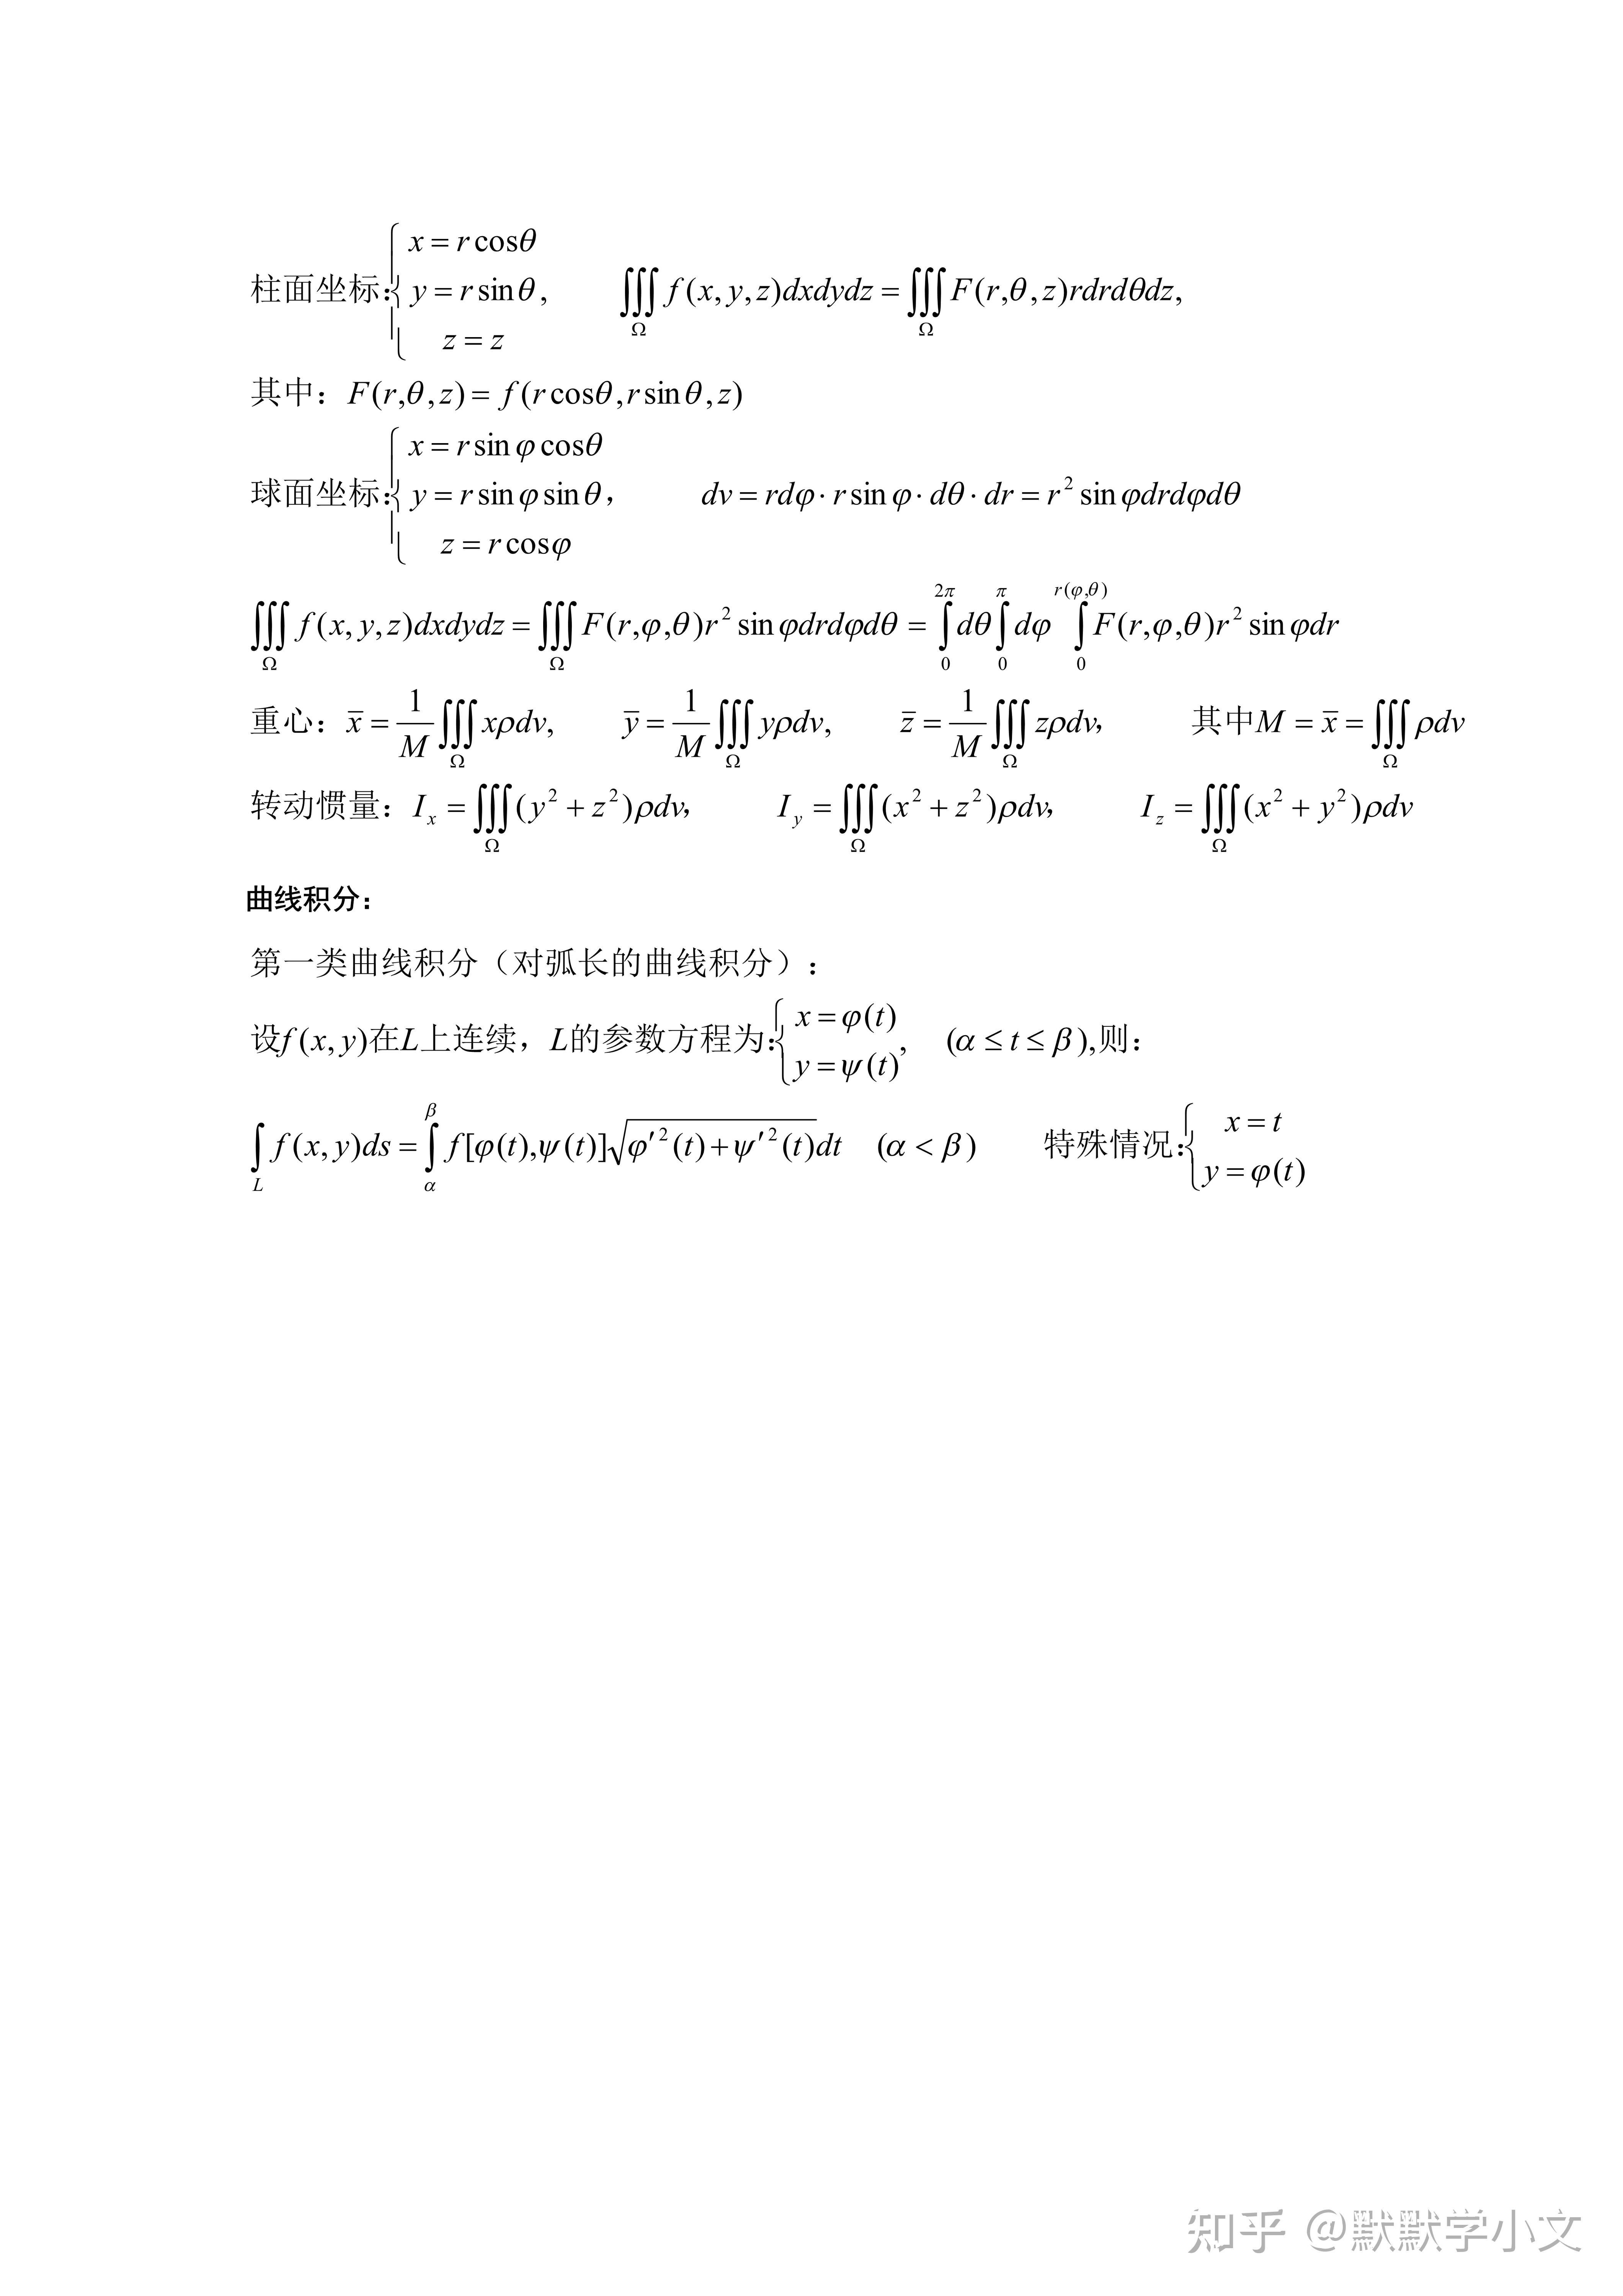 柱面坐标:{ x = r cosθ, y = r sinθ, z = z    ∭_Ω f(x, y, z)dxdydz = ∭_Ω F(r,θ,z)rdrdθdz,
其中：F(r,θ,z) = f(r cosθ, r sinθ, z)
球面坐标:{ x = r sinφ cosθ, y = r sinφ sinθ, z = r cosφ    dv = rdφ · r sinφ · dθ · dr = r² sinφdrdφdθ
∭_Ω f(x, y, z)dxdydz = ∭_Ω F(r,φ,θ)r² sinφdrdφdθ = ∫_0^{2π} dθ ∫_0^π dφ ∫_0^{r(φ,θ)} F(r,φ,θ)r² sinφdr
重心：x̄ = 1/M ∭_Ω xρdv,    ȳ = 1/M ∭_Ω yρdv,    z̄ = 1/M ∭_Ω zρdv，    其中M = x̄ = ∭_Ω ρdv
转动惯量：I_x = ∭_Ω (y² + z²)ρdv，    I_y = ∭_Ω (x² + z²)ρdv，    I_z = ∭_Ω (x² + y²)ρdv
曲线积分：
第一类曲线积分（对弧长的曲线积分）：
设f(x, y)在L上连续，L的参数方程为:{ x = φ(t), y = ψ(t)    (α ≤ t ≤ β),则：
∫_L f(x, y)ds = ∫_α^β f[φ(t),ψ(t)]√(φ′²(t) + ψ′²(t))dt    (α < β)    特殊情况:{ x = t, y = φ(t)
知乎 @默默学小文